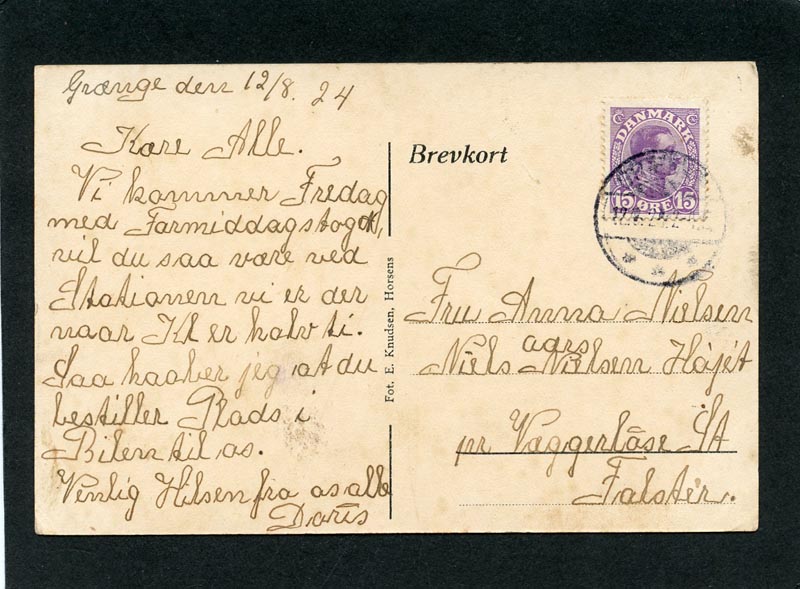 Grænge den 12/8. 24
Kære Alle.
Vi kommer Fredag
med Formiddagstoget,
vil du saa være ved
Stationen vi er der
naar Kl er halv ti.
Saa haaber jeg at du
bestiller Plads i
Bilen til os.
Venlig Hilsen fra os alle
Doris
Brevkort
Fot. E. Knudsen, Horsens
DANMARK
15 ØRE 15
Fru Anna Nielsen
adrs
Niels Nielsen Højét
pr Væggerløse St
Falster.